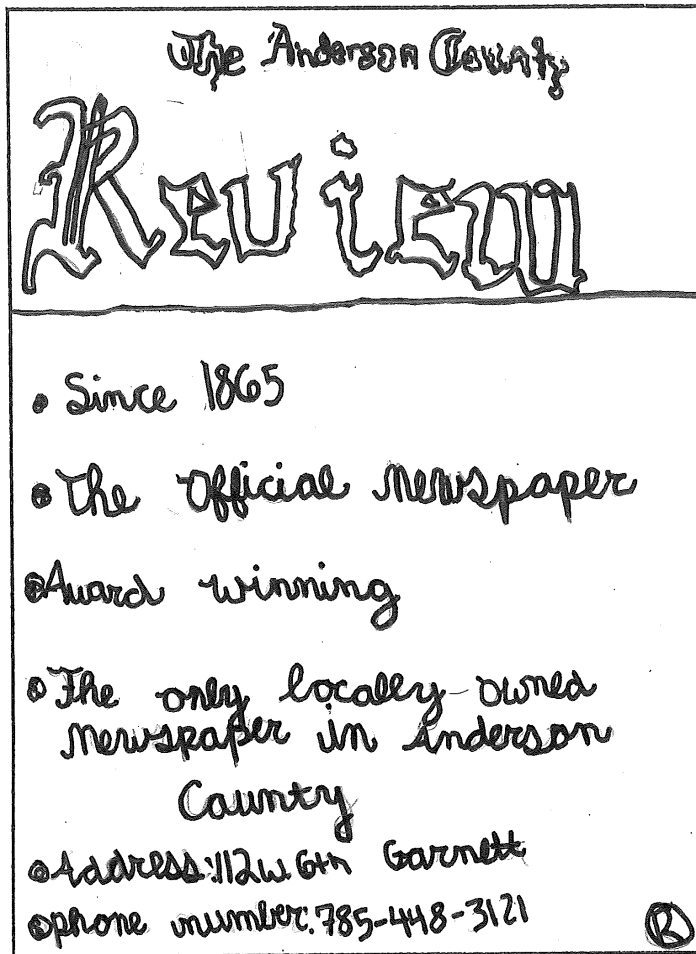 The Anderson County
Review
• Since 1865
• The Official Newspaper
• Award winning
• The only locally-owned
Newspaper in Anderson
County
• Address: 112 w. 6th Garnett
• phone number: 785-448-3121
®